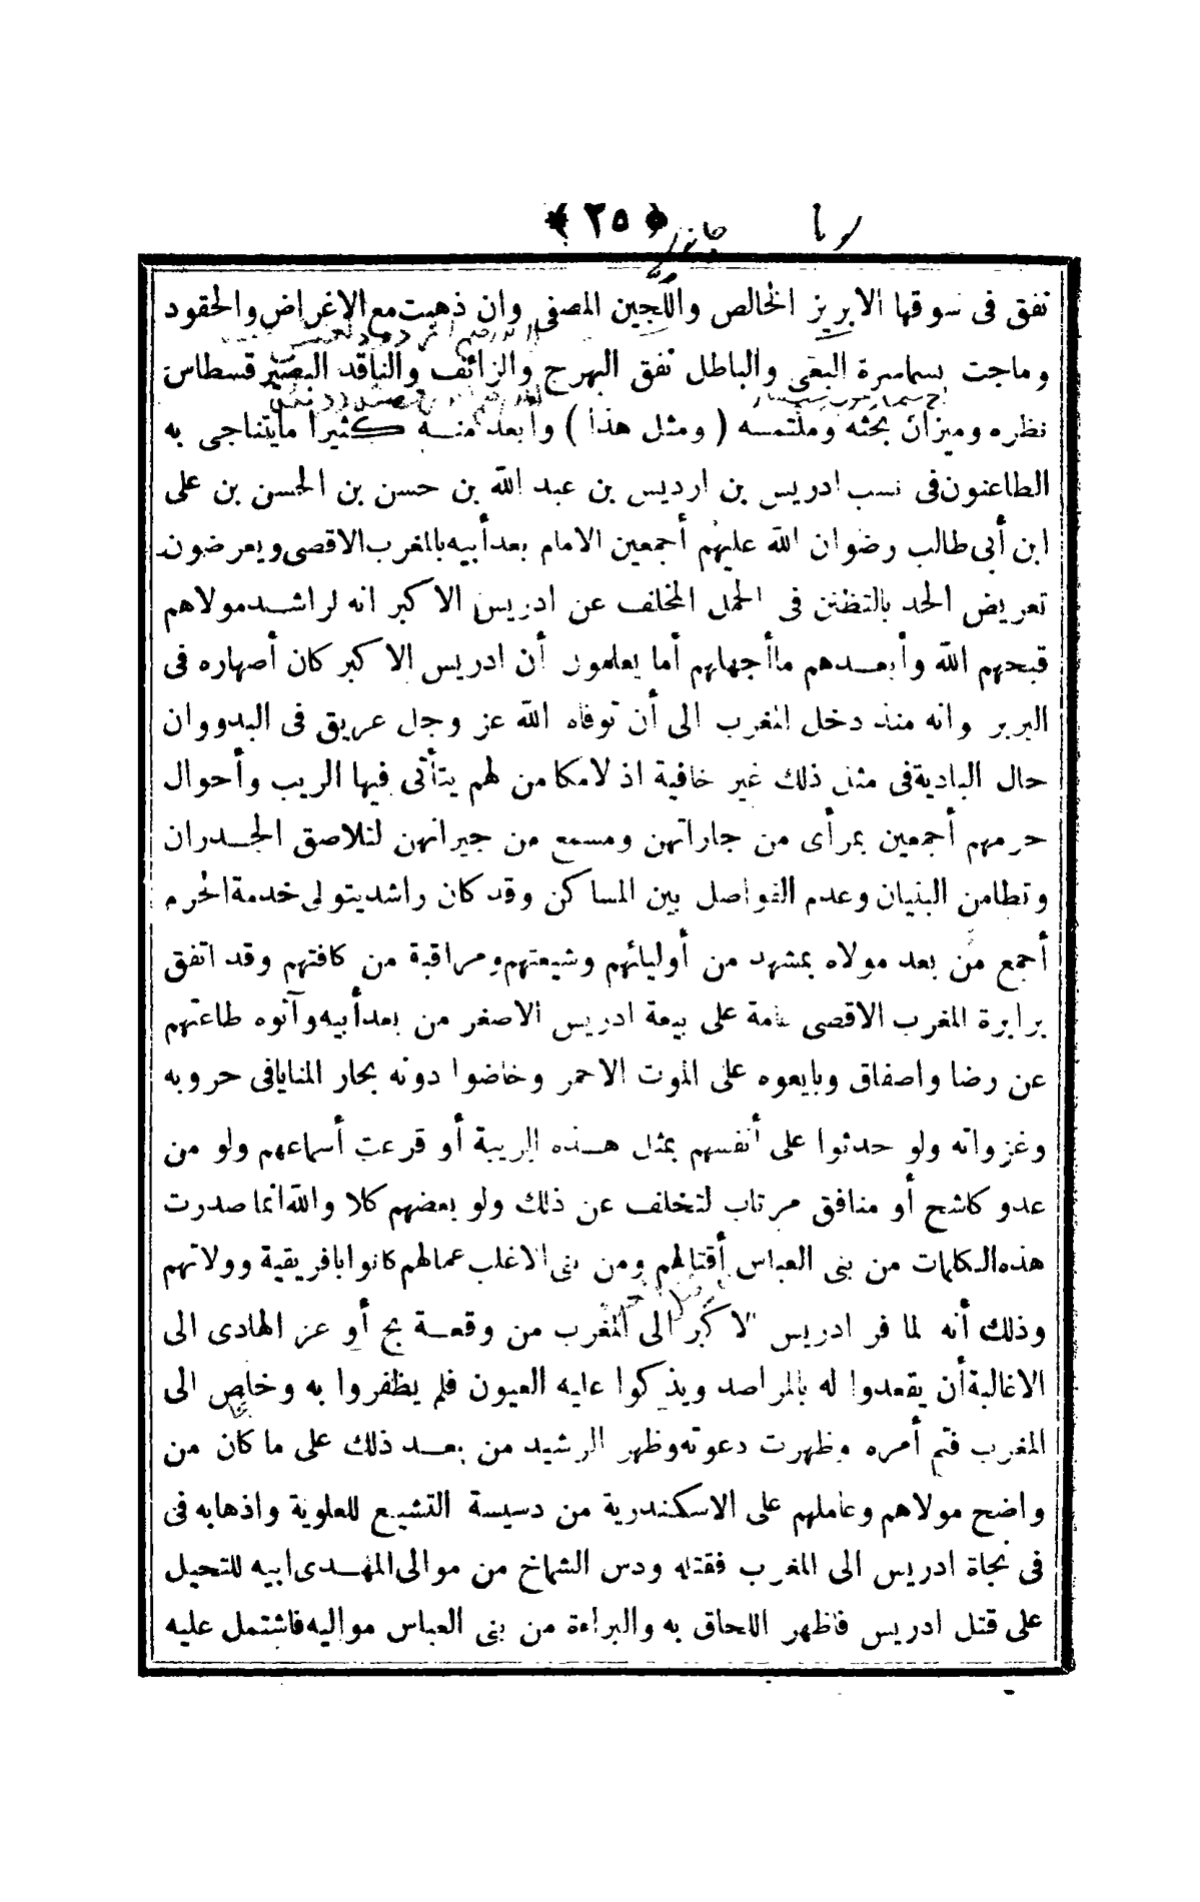 ﴿ ٢٥ ﴾
نفق فى سوقها الابريز الخالص واللجين المصفى وان ذهبت مع الاغراض والحقود
وماجت بسماسرة البغى والباطل نفق البهرج والزائف والناقد البصير قسطاس
نظره وميزان بحثه وملتمسه ( ومثل هذا ) وأبعد منه كثيرا مايتناجى به
الطاعنون فى نسب ادريس بن ادريس بن عبد الله بن حسن بن الحسن بن على
ابن أبى طالب رضوان الله عليهم أجمعين الامام بعد أبيه بالمغرب الاقصى ويعرضون
تعريض الحد بالتظنن فى الحمل المخلف عن ادريس الاكبر انه لراشد مولاهم
قبحهم الله وأبعدهم ماأجهلهم أما يعلمون أن ادريس الاكبر كان أصهاره فى
البربر وانه منذ دخل المغرب الى أن توفاه الله عز وجل عريق فى البدووان
حال البادية فى مثل ذلك غير خافية اذ لامكامن لهم يتأتى فيها الريب وأحوال
حرمهم أجمعين بمرأى من جاراتهن ومسمع من جيرانهن لتلاصق الجدران
وتطامن البنيان وعدم الفواصل بين المساكن وقد كان راشد يتولى خدمة الحرم
أجمع من بعد مولاه بمشهد من أوليائهم وشيعتهم ومراقبة من كافتهم وقد اتفق
برابرة المغرب الاقصى عامة على بيعة ادريس الاصغر من بعد أبيه وآتوه طاعتهم
عن رضا واصفاق وبايعوه على الموت الاحمر وخاضوا دونه بحار المنايا فى حروبه
وغزواته ولو حدثوا على أنفسهم بمثل هذه الريبة أو قرعت أسماعهم ولو من
عدو كاشح أو منافق مرتاب لتخلف عن ذلك ولو بعضهم كلا والله انما صدرت
هذه الكلمات من بنى العباس أقتالهم ومن بنى الاغلب عمالهم كانوا بافريقية وولاتهم
وذلك أنه لما فر ادريس الاكبر الى المغرب من وقعة بج أو عز الهادى الى
الاغالبة أن يقعدوا له بالمراصد ويذكوا عليه العيون فلم يظفروا به وخلص الى
المغرب فتم أمره وظهرت دعوته وظهر الرشيد من بعد ذلك على ما كان من
واضح مولاهم وعاملهم على الاسكندرية من دسيسة التشيع للعلوية واذهابه فى
فى نجاة ادريس الى المغرب فقتله ودس الشماخ من موالى المهدى ابيه للتحيل
على قتل ادريس فاظهر اللحاق به والبراءة من بنى العباس مواليه فاشتمل عليه